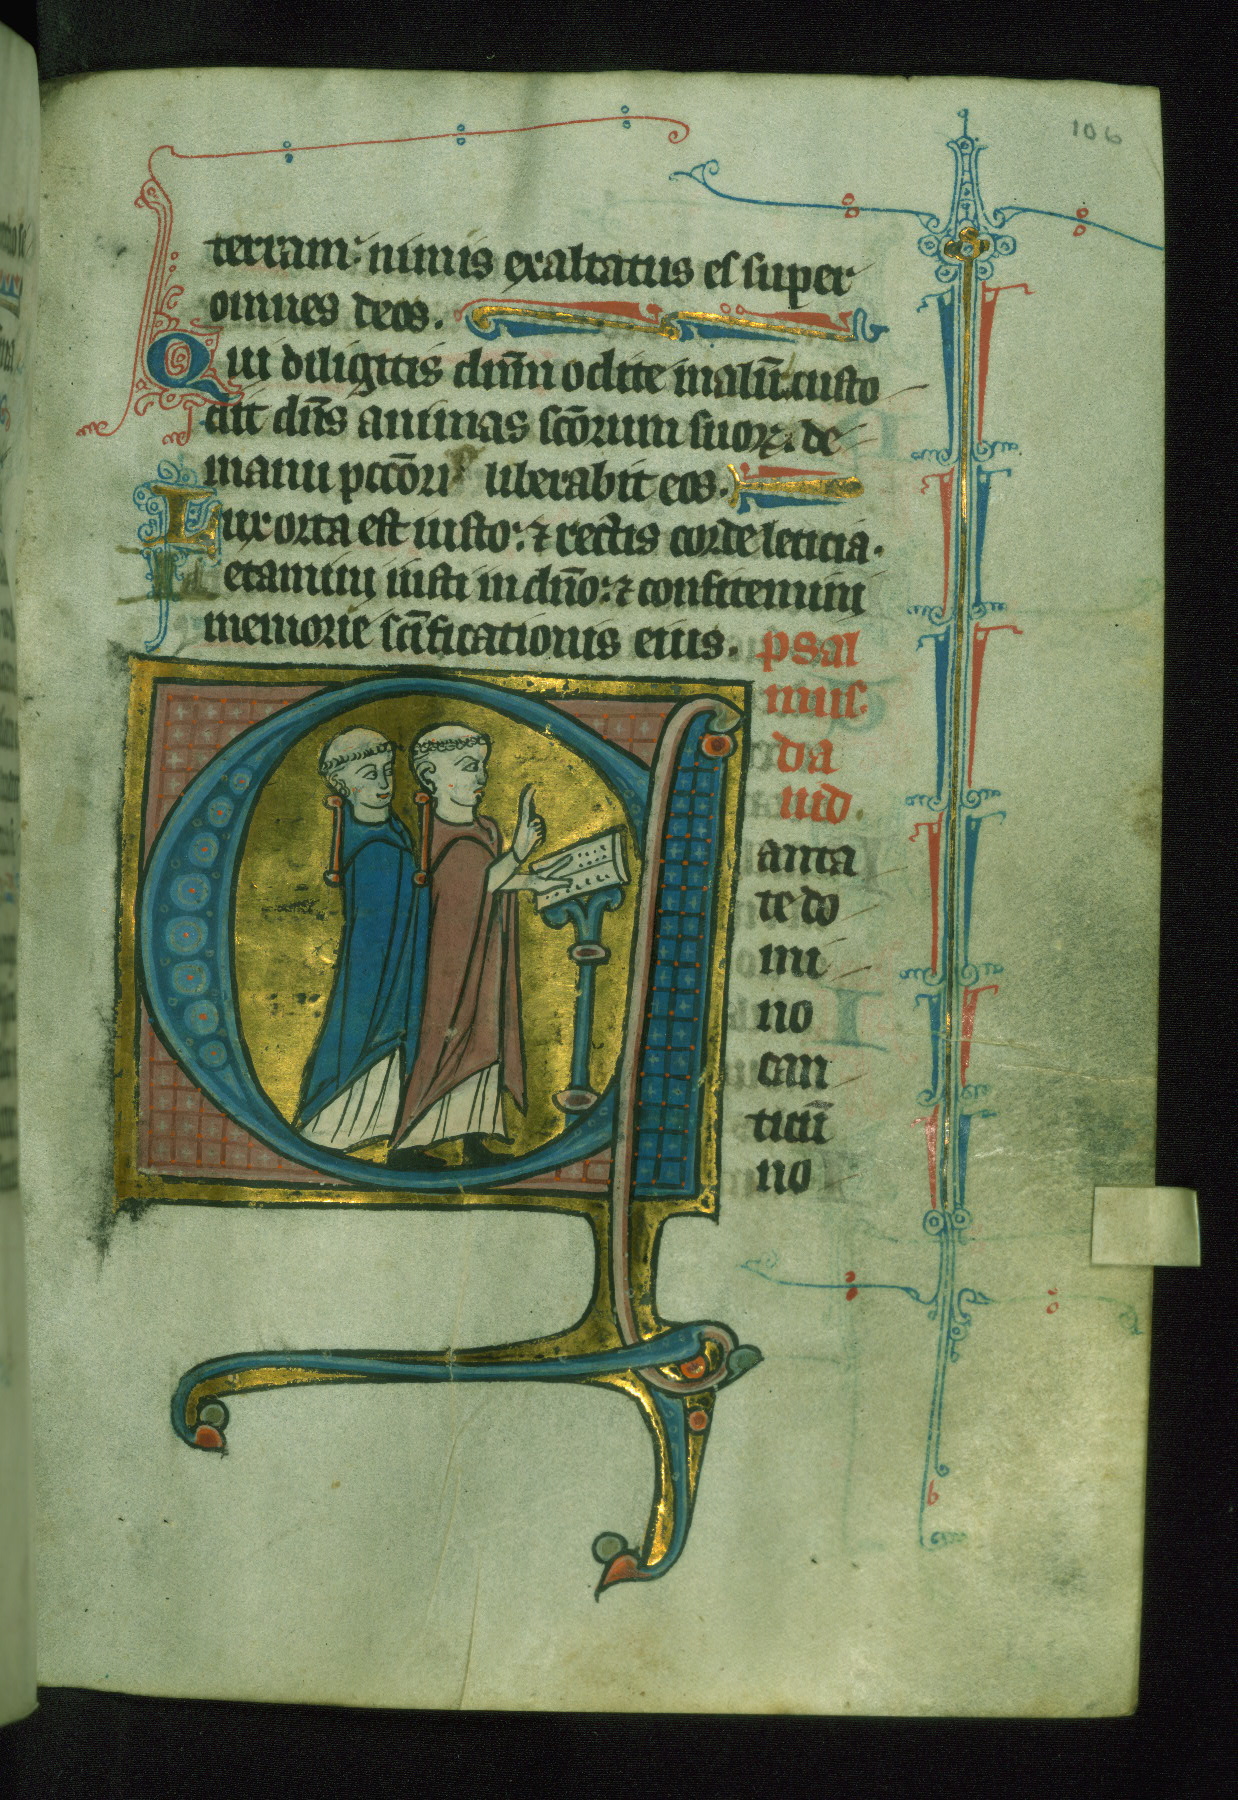 106
terram: nimis exaltatus es super
omnes deos.
Qui diligitis dn̄m odite malū. custo
dit dn̄s animas sc̄orum suoꝝ. de
manu pcc̄ori liberabit eos.
Lux orta est iusto: ⁊ rectis corde leticia.
Letamini iusti in dn̄o: ⁊ confitemini
memorie sc̄ificationis eius. psal
mus.
da
uid.
Canta
te do
mi
no
can
ticū
no